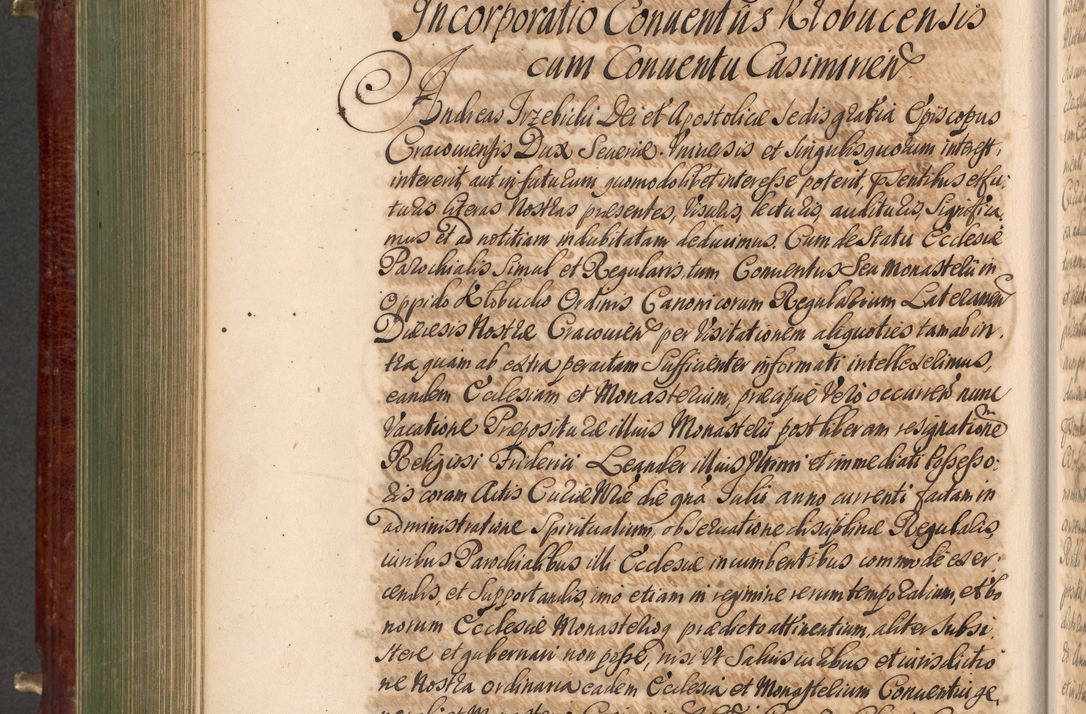 Incorporatio Conuentus Klobucensis
cum Conuentu Casimirien
Andreas Trzebicki Dei et Apostolicæ Sedis gratia Episcopus
Cracouiensis Dux Seueriæ. Vniuersis et Singulis quorum interest,
intererit, aut in futurum, quomodolibet interesse poterit, præsentibus et fu:
turis literas Nostras præsentes, Visuris, lecturis, audituris, Significa,
mus et ad notitiam indubitatam deducimus. Cum de Statu Ecclesiæ
Parochialis Simul et Regularis, tum Conuentus Seu Monasterii in
Oppido Klobucko Ordinis Canonicorum Regularium Lateranen
Diæcesis Nostræ Cracouien per Visitationem aliquoties tam ab in,
tra, quam ab extra peractam Sufficienter informati intellexerimus,
eandem Ecclesiam et Monasterium, præcipue Vero occurren nunc
Vacatione Præpositu ræ illius Monasterii post liberam resignatione
Religiosi Friderici Leander illius Vltimi et immediati Possesso:
ris coram Actis Curiæ Nræ die Julii anno currenti factam in
administratione Spiritualium, obseruatione disciplinæ Regularis,
iuribus Parochialibus illi Ecclesiæ incumbentibus commode exer
cendis, et Supportandis, imo etiam in regimine rerum temporalium, et bo
norum Ecclesiæ Monasteriiq prædicto attinentium, aliter Subsi,
stere et gubernari non posse, nisi Vt Saluis iuribus et iurisdictio
ne Nostra ordinaria eadem Ecclesia et Monasterium Conuentui ge,